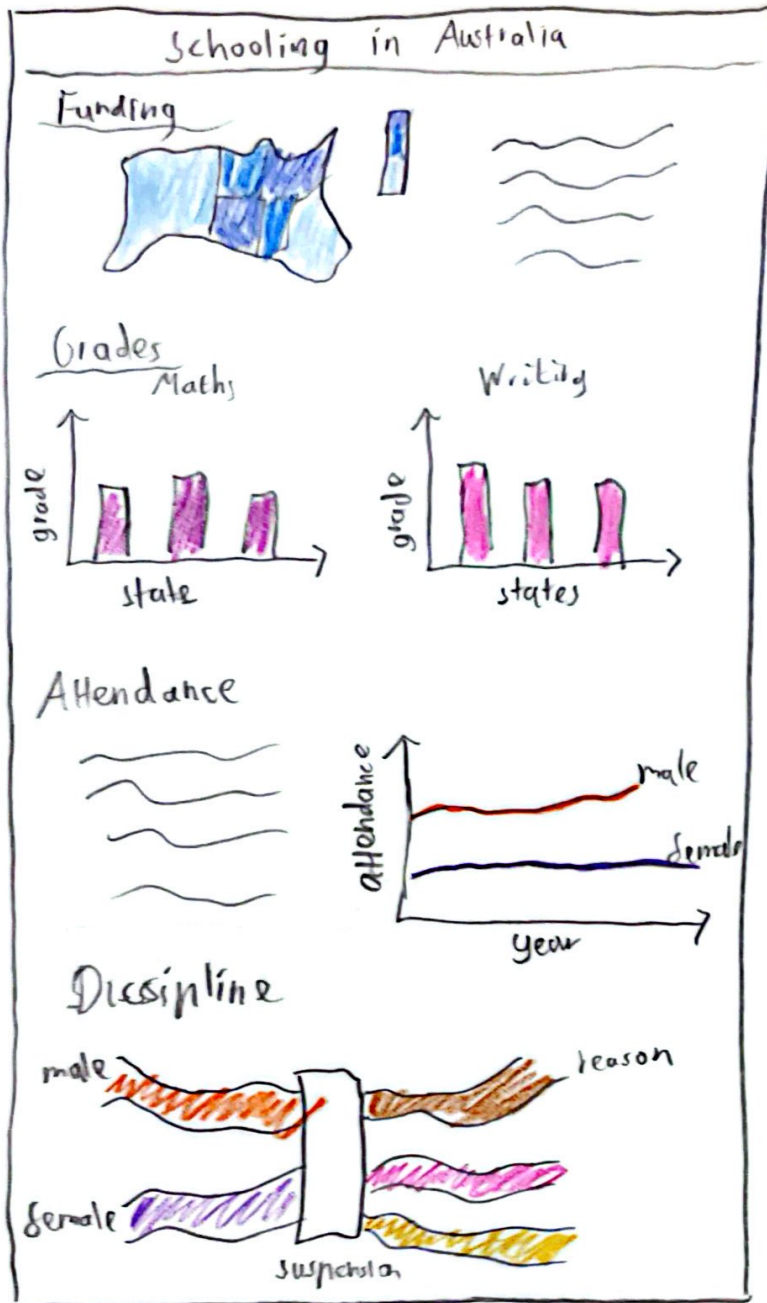 Schooling in Australia
Funding
Grades
Maths
Writing
grade
state
grade
states
Attendance
attendance
male
female
year
Dissipline
male
reason
female
suspension